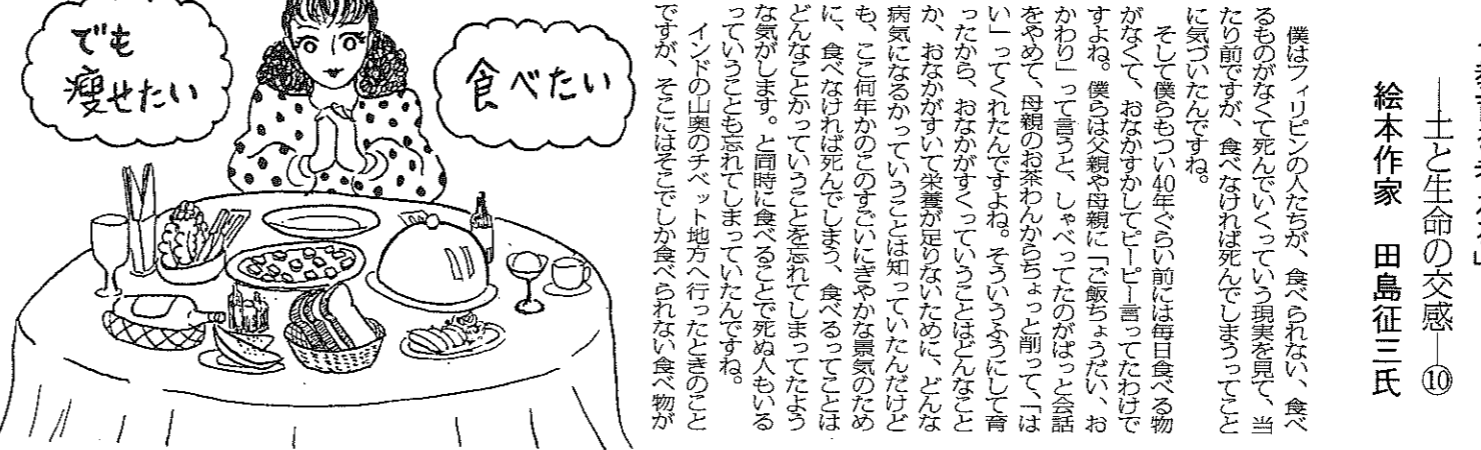 ―土と生命の交感―⑩
絵本作家　田島征三氏
僕はフィリピンの人たちが、食べられない、食べ
るものがなくて死んでいくっていう現実を見て、当
たり前ですが、食べなければ死んでしまうってこと
に気づいたんですね。
そして僕らもつい40年ぐらい前には毎日食べる物
がなくて、おなかすかしてピーピー言ってたわけで
すよね。僕らは父親や母親に「ご飯ちょうだい、お
かわり」って言うと、しゃべってたのがぱっと会話
をやめて、母親のお茶わんからちょっと削って、「は
い」ってくれたんですよね。そういうふうにして育
ったから、おなかがすくっていうことはどんなこと
か、おなかがすいて栄養が足りないために、どんな
病気になるかっていうことは知っていたんだけど
も、ここ何年かのこのすごいにぎやかな景気のため
に、食べなければ死んでしまう、食べるってことは
どんなことかっていうことを忘れてしまってたよう
な気がします。と同時に食べることで死ぬ人もいる
っていうことも忘れてしまっていたんですね。
インドの山奥のチベット地方へ行ったときのこと
ですが、そこにはそこでしか食べられない食べ物が
食べたい
でも
痩せたい